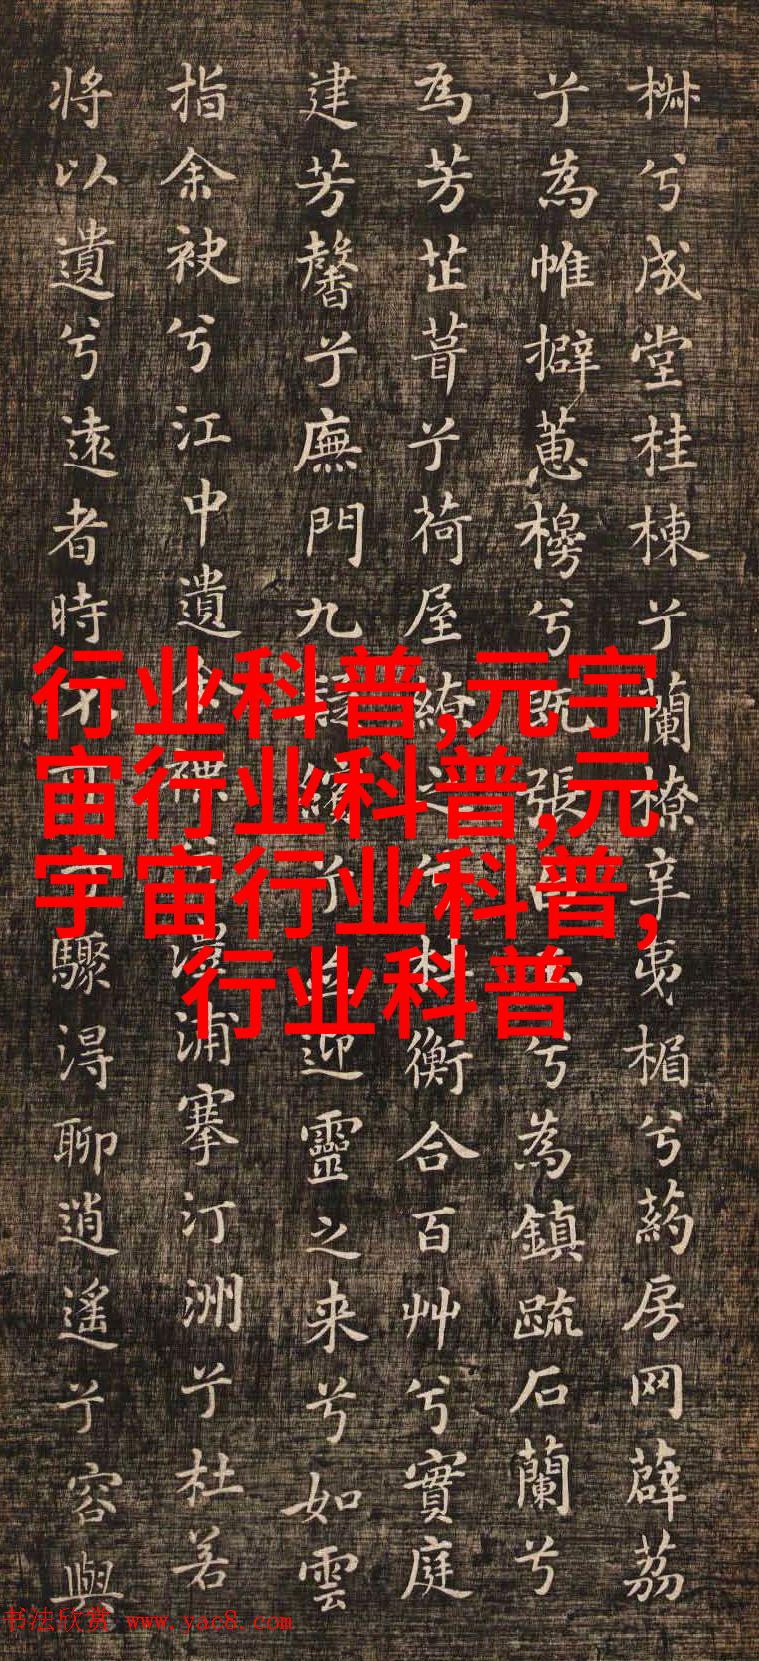 椒兮成堂桂棟兮蘭橑辛夷楣兮葯房网薜荔
兮為帷擗蕙櫋兮既張白玉兮為鎮疏石蘭兮
為芳芷葺兮荷屋繚之兮杜衡合百艸兮實庭
建芳馨兮廡門九嶷繽兮並迎靈之来兮如雲
指余袂兮江中遺余褋兮澧浦搴汀洲兮杜若
将以遺兮遠者時不可兮驟得聊逍遙兮容與
行业科普,元宇
宙行业科普,元
宇宙行业科普,
行业科普
书法欣赏 www.yac8.com